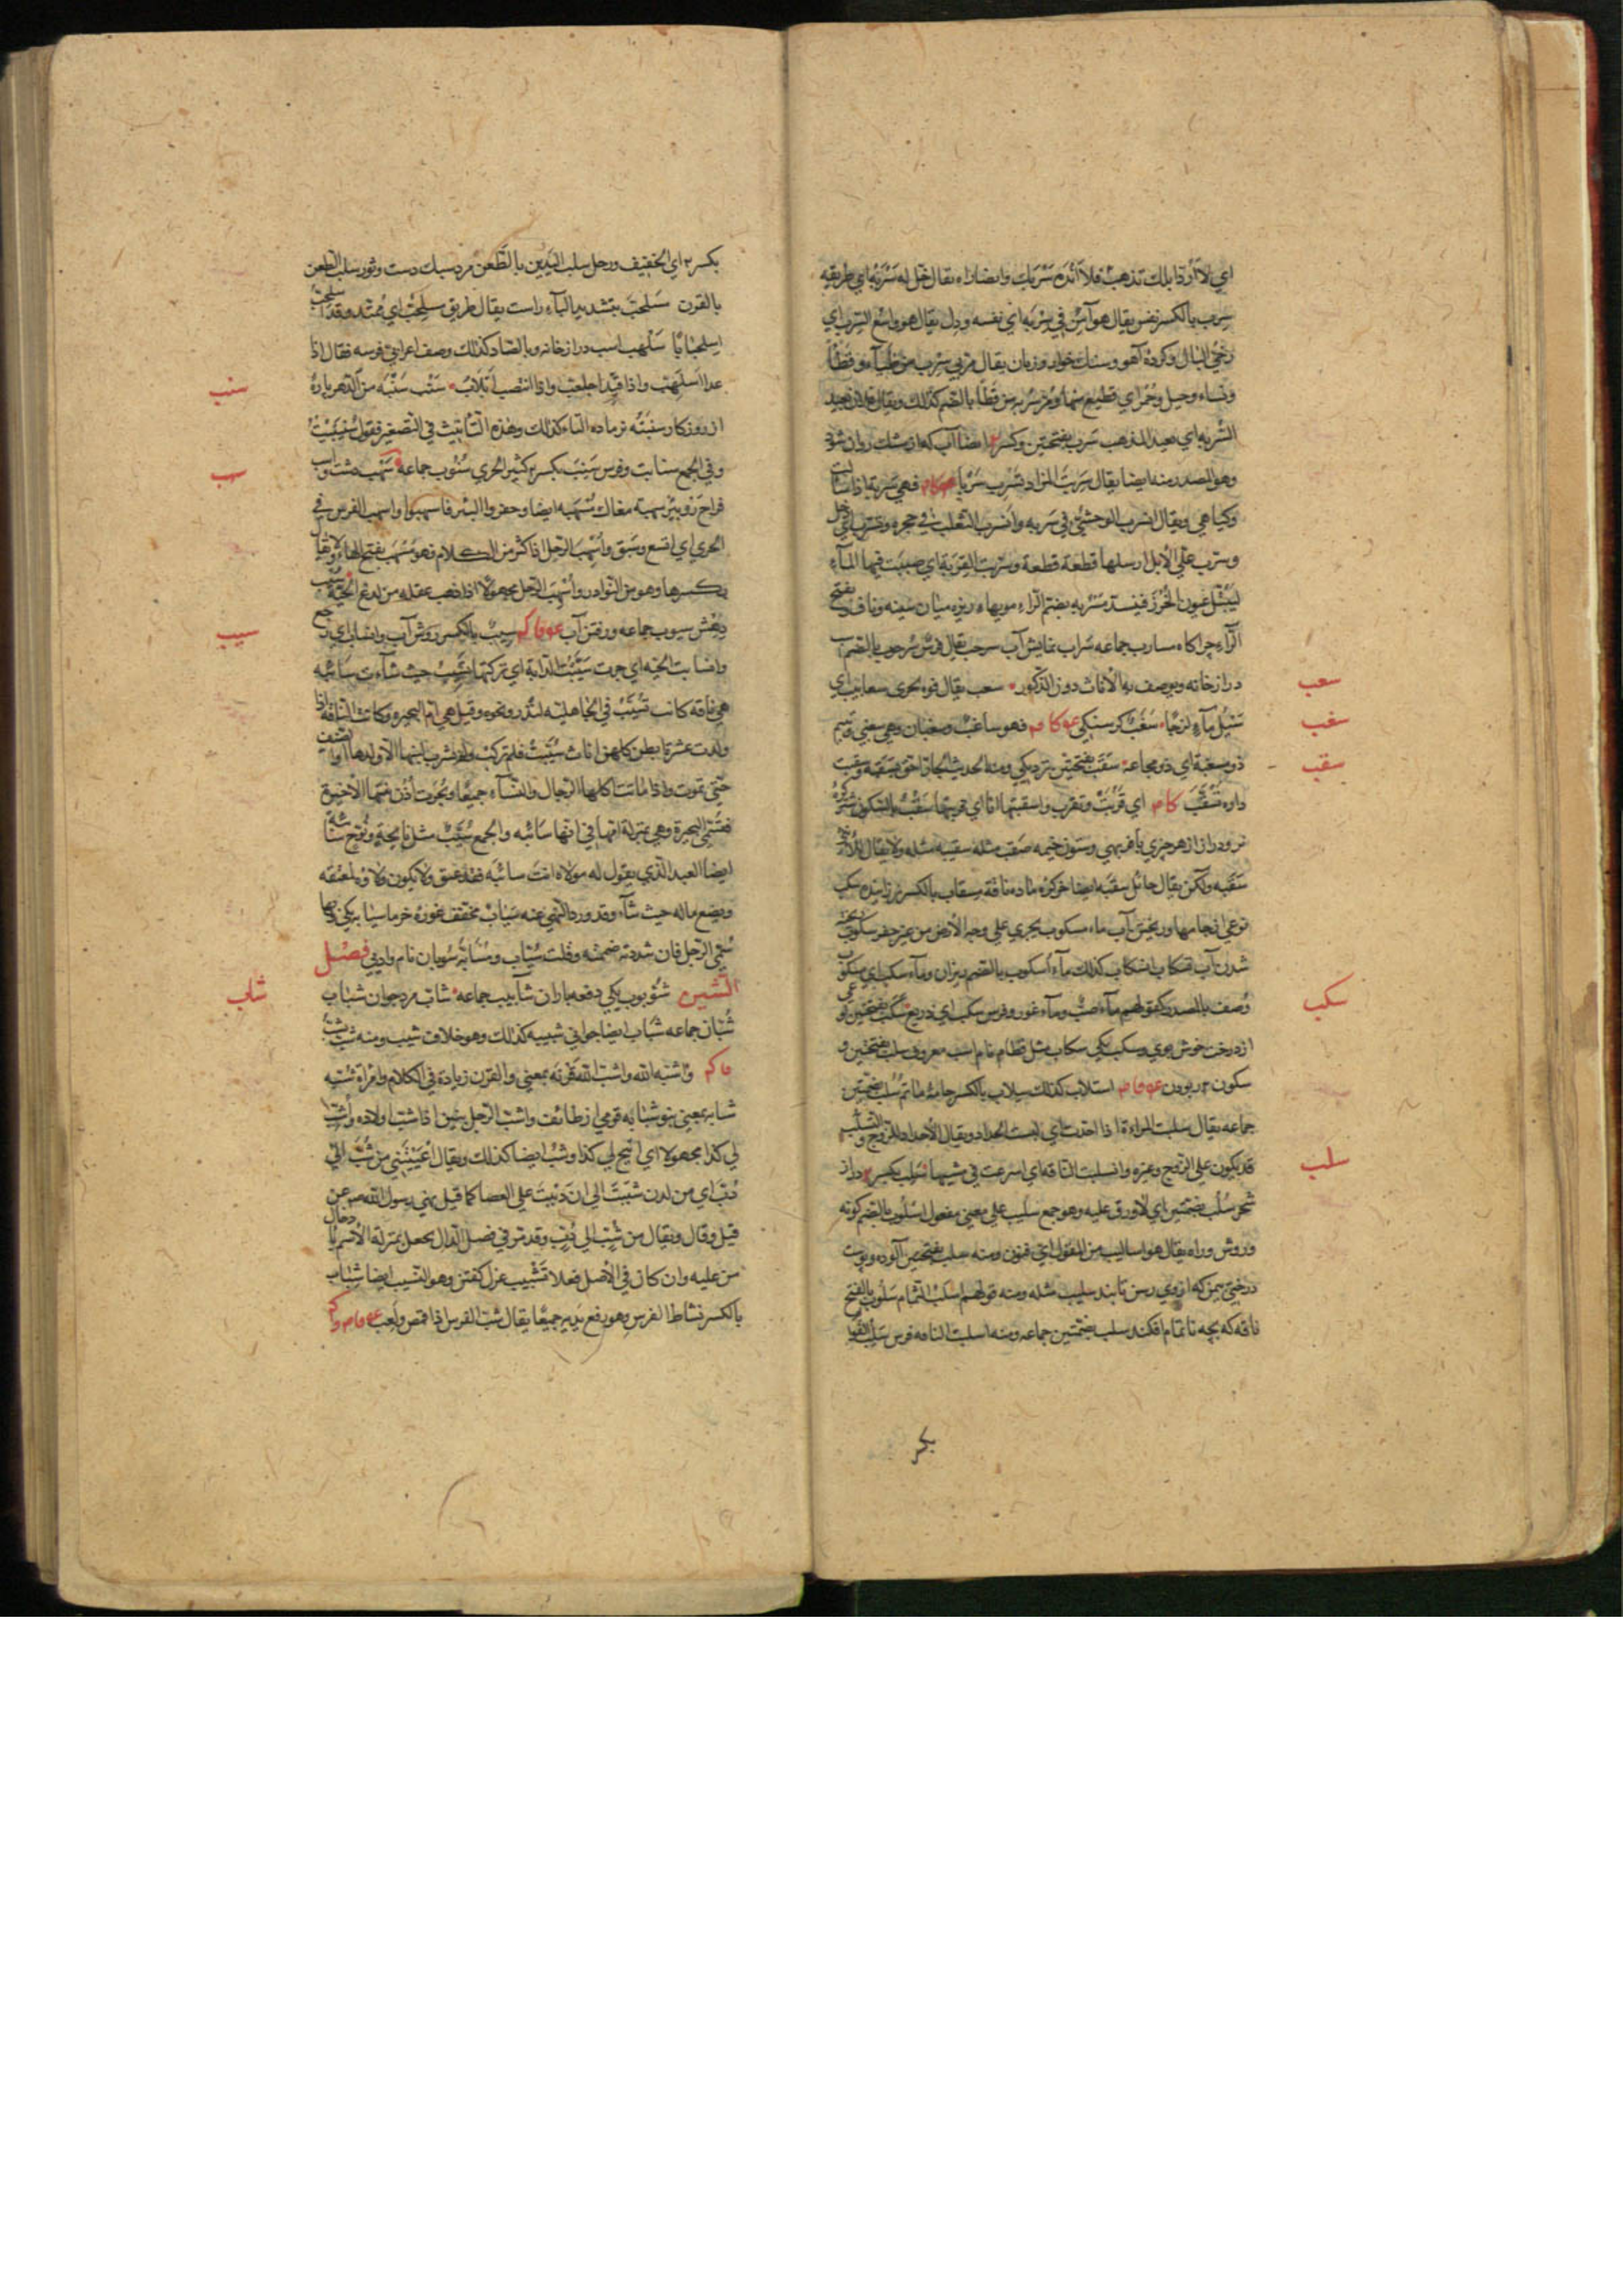 اي لا اردّ ابلك تذهب فلا انده سربك وايضا راه يقال خلّ له سربه اي طريقه
سرب بالكسر نفس يقال هو آمن في سربه اي نفسه ودل يقال هو واسع السرب اي
رخيّ البال وكروه آهو وسنك خوار وزنان يقال مرّ بي سرب من ظباء وقطا
ونساء
السّربه اي بعيد المذهب سرب بفتحتين وكسر ايضا آب كه از مشك روان شود
وهو المصدر منه ايضا يقال سربت المزاد تسرب سربا فهي سربة اذا سالت
وكياهي ويقال انسرب الوحشيّ في سربه وانسرب الثعلب في جحره وتسرب اي دخل
وسرّب عليّ الابل ارسلها قطعة قطعة وسرّبت القربة اي صببت فيها الماء
ليبتلّ عيون الخرز فينسدّ مسربه بضم الراء مويهاء ريزه ميان سينه وناف بفتح
الراء چراكاه مسارب جماعه سراب نمايش آب سرحب يقال فرس سرحوب بالضم اسب
دراز خانه ويوصف به الاناث دون الذكور سعب يقال فوه يجري سعابيب اي
سعب
تسيل ماء لزجا سغب كرسنكي عو كام فهو ساغب وسغبان وهي سغبي وتيم
سغب
ذو مسغبة اي ذو مجاعة سقب بفتحتين نزديكي ومنه الحديث الجار احق بسقبه وسقبت
سقب
داره تسقب كام اي قربت وتقرب واسقبتها انا اي قربتها سقب بالسكون شتر كره
نر ودراز از هر چيزي با فربهي وستون خيمه صقب مثله سقيبه مثله ولا يقال للانثي
سقبه ولكن يقال حائل سقبه ايضا خركره ماده ناقة مسقاب بالكسر نر زاينده سكب
نوعي از جامها وريختن آب ماء مسكوب يجري علي وجه الارض من غير حفر سكوب ريخته
شدن آب تسكاب انسكاب كذلك ماء اسكوب بالضم ريزان وماء سكب اي مسكوب
وصف بالمصدر كقولهم ماء صبّ وماء غور وفرس سكب اي ذريع سكب بفتحتين نوعي
سكب
از درخت خوش بوي وسكبه يكي سكاب مثل قطام نام اسب معروف سلب بفتحتين و
سكون ربودن عو فام استلاب كذلك سلاب بالكسر جامه ماتم سلب بضمتين
جماعه يقال سلبت المراءة اذا احدّت اي لبست الحداد ويقال الاحداد للزوج والتسلب
قد يكون علي الزوج وغيره وانسلبت الناقه اي اسرعت في سيرها سلب بكسر دراز
سلب
شجر سلب بضمتين اي لا ورق عليه وهو جمع سليب علي معني مفعول اسلوب بالضم كونه
وروش وراه يقال هو اساليب من القول اي فنون ومنه سلب بفتحتين آلوده وپوست
درختي بيمن كه از وي رسن تابند سليب مثله ومنه قولهم اسلب الثمام سلوب بالفتح
ناقه كه بچه ناتمام افكند سلب بضمتين جماعه ومنه اسلبت الناقه فرس سلب القوائم
بكسر
بكسر اي الخفيف ورجل سلب اليدين بالطعن مرد سبك دست وثور سلب الطعن
بالقرن سلحب بتشديد الباء راست يقال طريق سلحبّ اي ممتد وقد اسلحبّ
اسلحبابا سلهب اسب دراز خانه وبالصاد كذلك وصف اعرابيّ فرسه فقال اذا
عدا اسلهب واذا قيّد اجلعبّ واذا انتصب اتلأبّ سنب سنبه من الدهر پاره
سنب
از روزكار سنبته نر ماده التاء كذلك وهذه التأنيث في التصغير فقول سنيبته
وفي الجمع سنابت وفرس سنب بكسر كثير الجري سنوب جماعه سهب دشت
سهب
فراخ بئر سهبة مغاك مسهبه ايضا وحفروا البئر فاسهبوا واسهب الفرس في
الجري اي اتسع وسبق واسهب الرجل اذا كثر من الكلام فهو مسهب بفتح الهاء ولا يقال
بكسرها وهو من النوادر واسهب الرجل مجهولا اذا ذهب عقله من لدغ الحيّة سيب
دهش سيوب جماعه ورفتن آب عو فاكم سيب بالكسر روش آب وانساب اي رجع
سيب
وانسابت الحيّه اي جرت سيّبت الدابة اي تركتها تسيب حيث شاءت سائبه
هي ناقه كانت تسيّب في الجاهلية لنذر ونحوه وقيل هي ام البحيره وكانت الناقة اذا
ولدت عشرة ابطن كلهنّ اناث سيّبت فلم تركب ولم يشرب لبنها الا ولدها او الضيف
حتّي تموت واذا ماتت اكلها الرجال والنساء جميعا وبحرت اذن بنتها الاخيرة
فتسمّي البحيرة وهي بمنزلة امها في انها سائبه والجمع سيّب مثل نائحة ونوّح سائبه
ايضا العبد الذي يقول له مولاه انت سائبه فقد عتق ولا يكون ولاؤه لمعتقه
ويضع ماله حيث شاء وقد ورد النهي عنه سياب مخفف غوره خرما سيابه يكي وبها
سمّي الرجل فان شددته ضممته وقلت سيّاب وسيّابه سوبان نام وادئي فصل
الشين شؤبوب يكي دفعه باران شآبيب جماعه شابّ مرد جوان شباب
شاب
شبّان جماعه شباب ايضا جواني شبيبه كذلك وهو خلاف شيب ومنه شبّ يشبّ
فاكم واشبّه الله واشبّ الله قرنه بمعني والقرن زيادة في الكلام وامرأة شبّه
شابه بمعني بنو شبابه قومي از طائف واشبّ الرجل بنين اذا شبّ اولاده واشبّ
لي كذا مجهولا اي اتيح لي كذا وشبّ ايضا كذلك ويقال اعييتني من شبّ الي
دبّ اي من لدن شببت الي ان دببت علي العصا كما قيل نهي رسول الله صـ عن
قيل وقال ويقال من شبّ الي دبّ وقد مر في فصل الدال يجعل بمنزلة الاسم بادخال
من عليه وان كان في الاصل فعلا تشبيب غزل كفتن وهو النسيب ايضا شباب
بالكسر نشاط الفرس وهو رفع يديه جميعا يقال شبّ الفرس اذا قمص ولعب عو فام